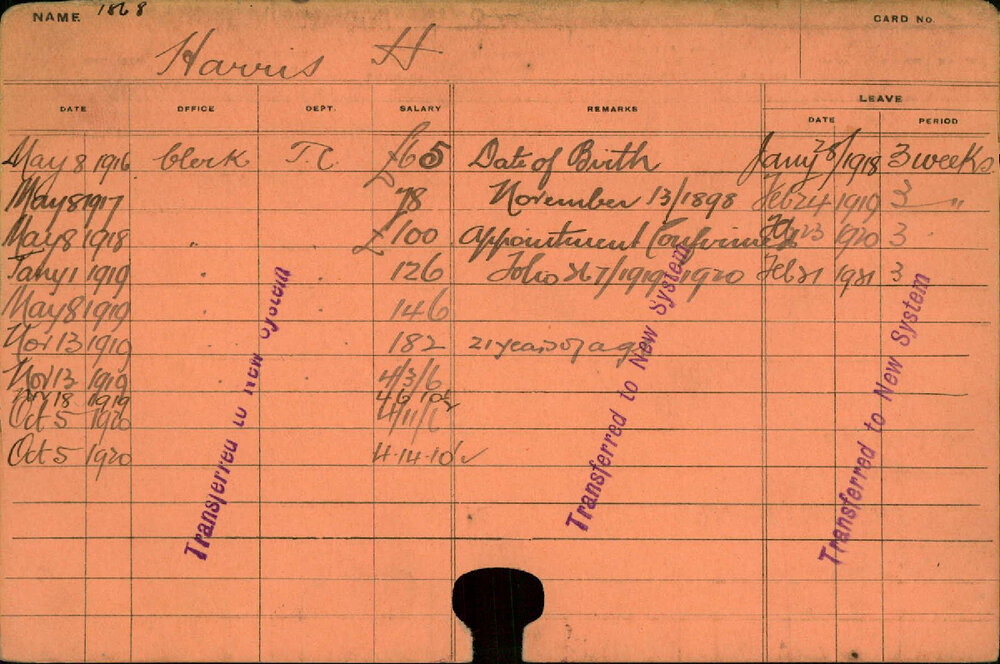 NAME 1868 CARD No.
Harris H
LEAVE
DATE OFFICE DEPT. SALARY REMARKS DATE PERIOD
May 8 1916 Clerk T.C. £65 Date of Birth Jany 28/1918 3 weeks
May 8 1917 78 November 13/1898 Feb 24 1919 3 "
May 8 1918 " £100 Appointment Confirmed 23 1920 3
Jany 1 1919 126 1919 1920 Feb 21 1921 3
May 8 1919 146
Nov 13 1919 182 21 years of age
Nov 13 1919 4/3/6
18 1919
Oct 5 1920 4/11/
Oct 5 1920 4.14.10 ✓
Transferred to New System
Transferred to New System
Transferred to New System